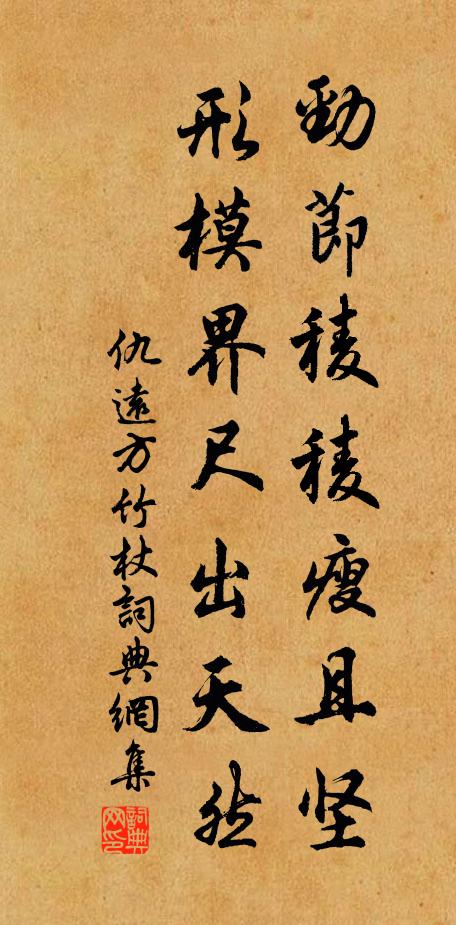 勁節稜稜瘦且坚
形模界尺出天然
仇遠方竹杖詞典網集
詞典
网印